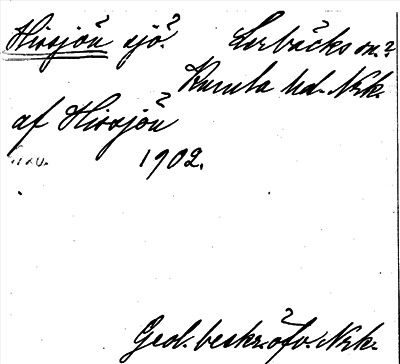 Hissjön sjö. Lerbäcks sn.
Kumla hd. Nrk.
af Hissjön
1902.
Geol. beskr. öfv. Nrk.